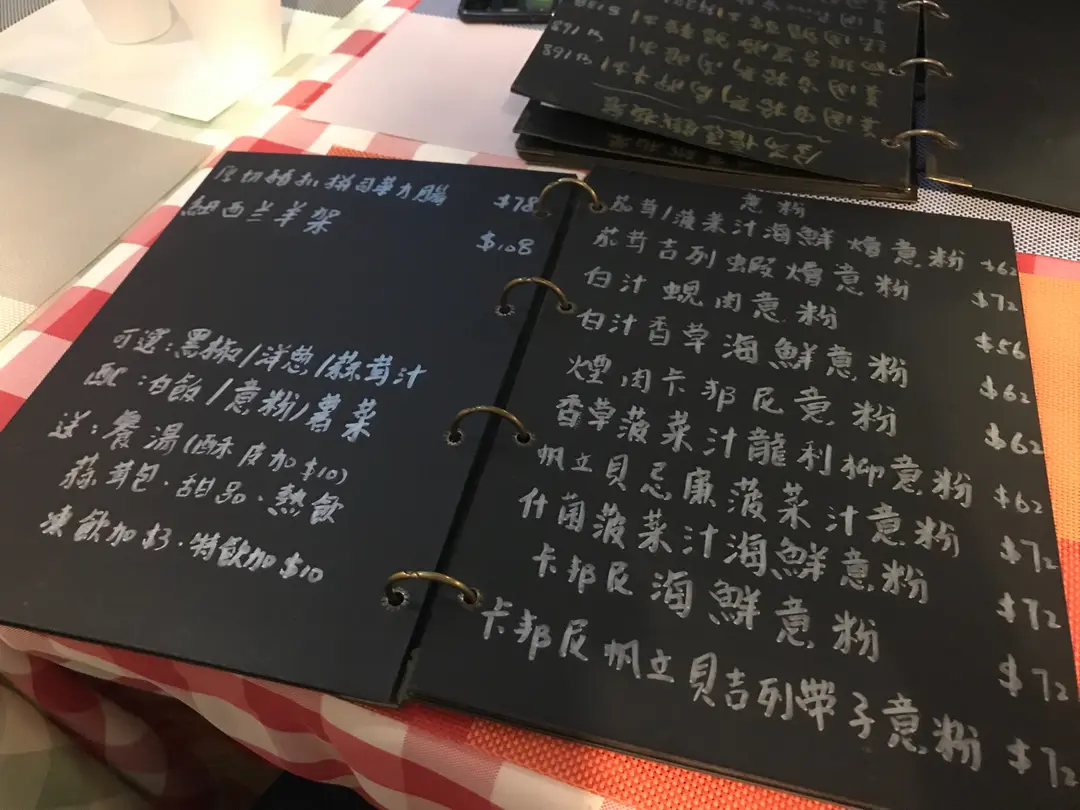 厚切豬扒拼司華力腸 $78
紐西兰羊架 $108
可選:黑椒/洋葱/蒜茸汁
配:白飯/意粉/薯菜
送:餐湯(酥皮加$10)
蒜茸包·甜品·熱飲
凍飲加$3·特飲加$10
意粉
茄茸/菠菜汁海鮮燴意粉 $62
茄茸吉列蝦燴意粉 $72
白汁蜆肉意粉 $56
白汁香草海鮮意粉 $62
煙肉卡邦尼意粉 $62
香草菠菜汁龍利柳意粉 $62
帆立貝忌廉菠菜汁意粉 $72
什菌菠菜汁海鮮意粉 $72
卡邦尼海鮮意粉 $72
卡邦尼帆立貝吉列帶子意粉 $72